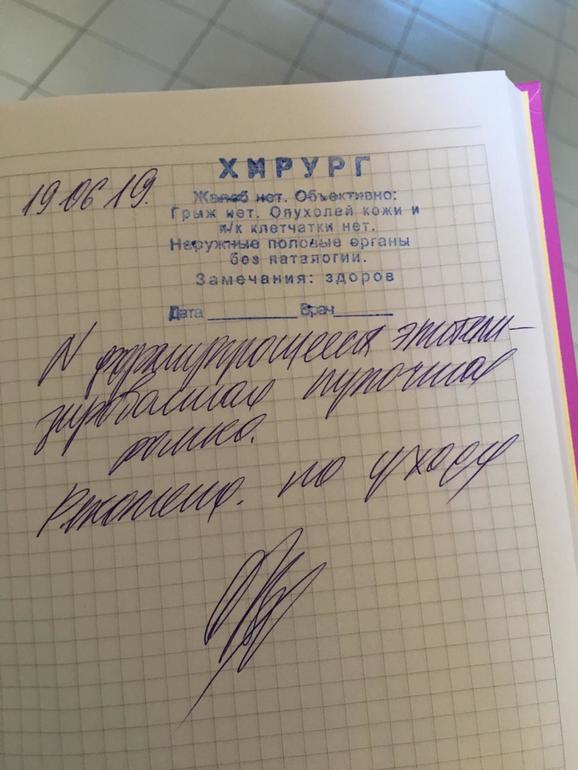 ХИРУРГ
19 06 19.
Жалоб нет. Объективно:
Грыж нет. Опухолей кожи и
п/к клетчатки нет.
Наружные половые органы
без паталогии.
Замечания: здоров
Дата Врач
N формирующееся эпители-
зированная пупочная
ямка.
по уходу